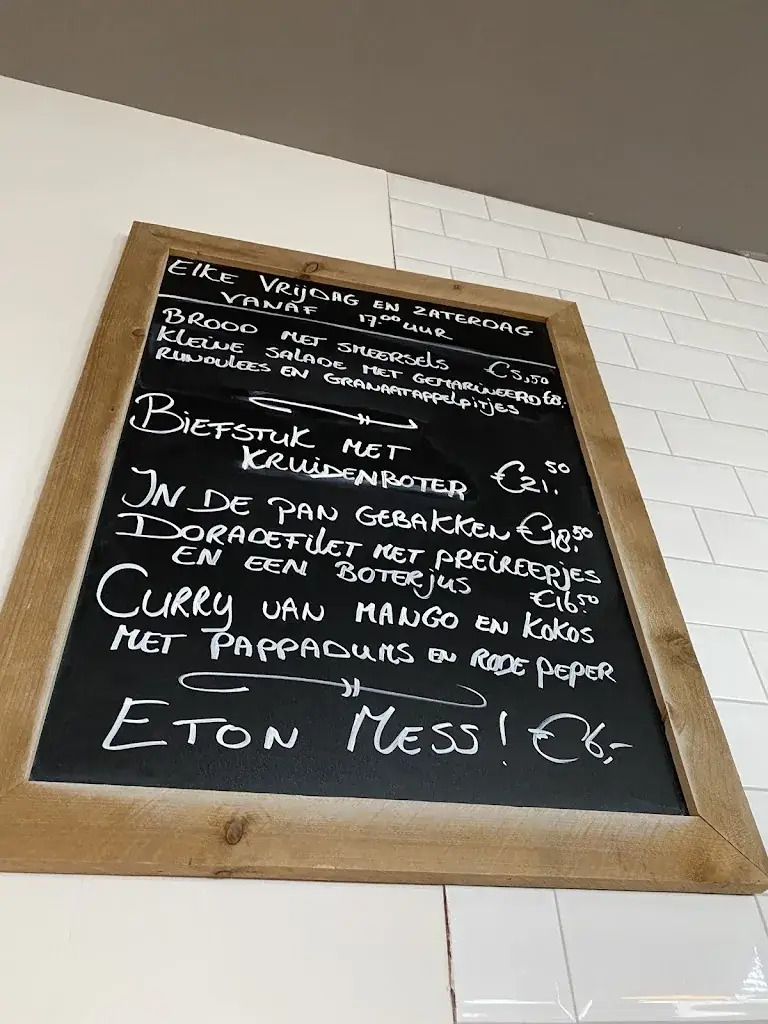 ELKE VRIJDAG EN ZATERDAG
VANAF 17.00 UUR
BROOD MET SMEERSELS €5,50
KLEINE SALADE MET GEMARINEERD €8.-
RUNDVLEES EN GRANAATAPPELPITJES
BIEFSTUK MET
KRUIDENBOTER €21.50
IN DE PAN GEBAKKEN €18.50
DORADEFILET MET PREIREEPJES
EN EEN BOTERJUS €16.50
CURRY VAN MANGO EN KOKOS
MET PAPPADUMS EN RODE PEPER
ETON MESS! €6,-